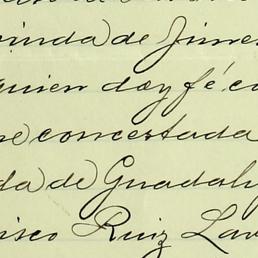 vinda de Jime
quien doy fé c
ne concertada
da de Guadal
isco Ruiz Lav